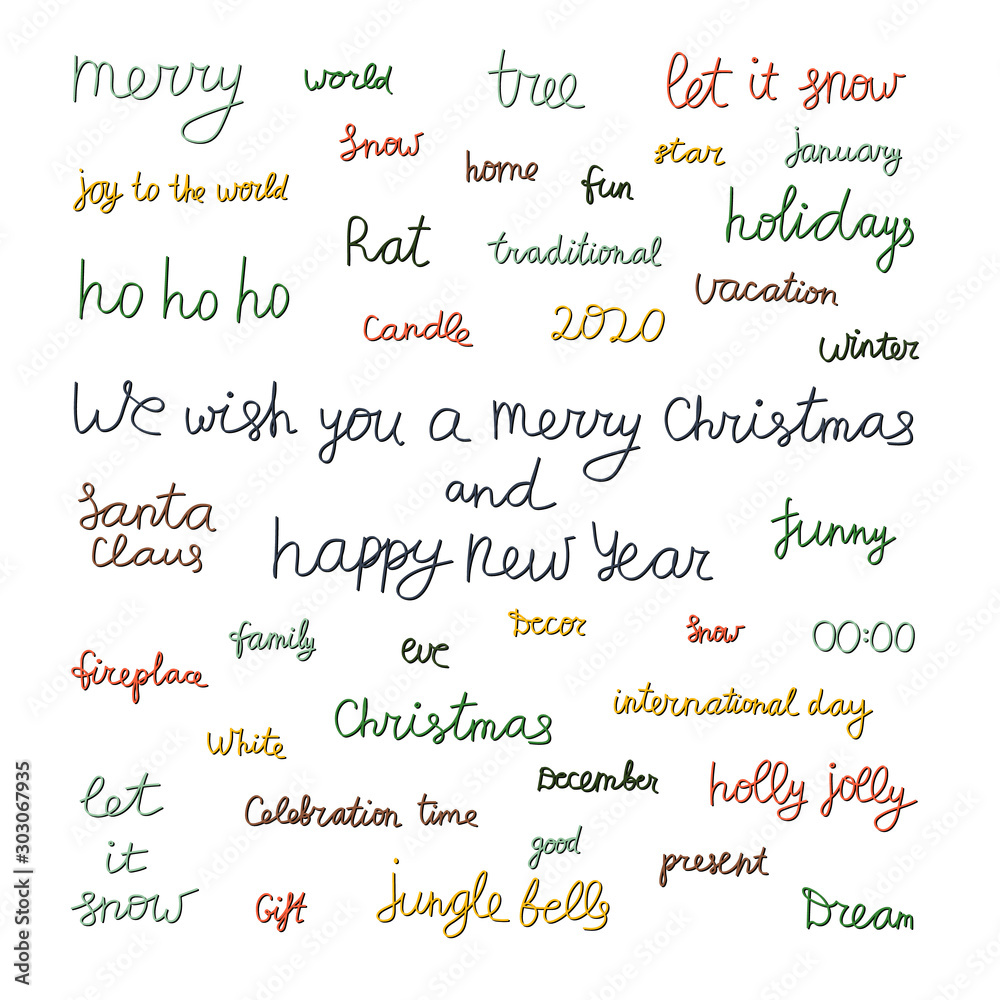 merry world tree let it snow
Snow home star january
joy to the world fun
Rat traditional holidays
ho ho ho Candle 2020 Vacation
Winter
We wish you a merry Christmas
and
happy New Year
Santa
Claus
funny
family eve Decor Snow 00:00
fireplace
Christmas international day
White
December holly jolly
let
it
snow
Celebration time
good present
Gift jungle bells Dream
Adobe Stock | #303067935